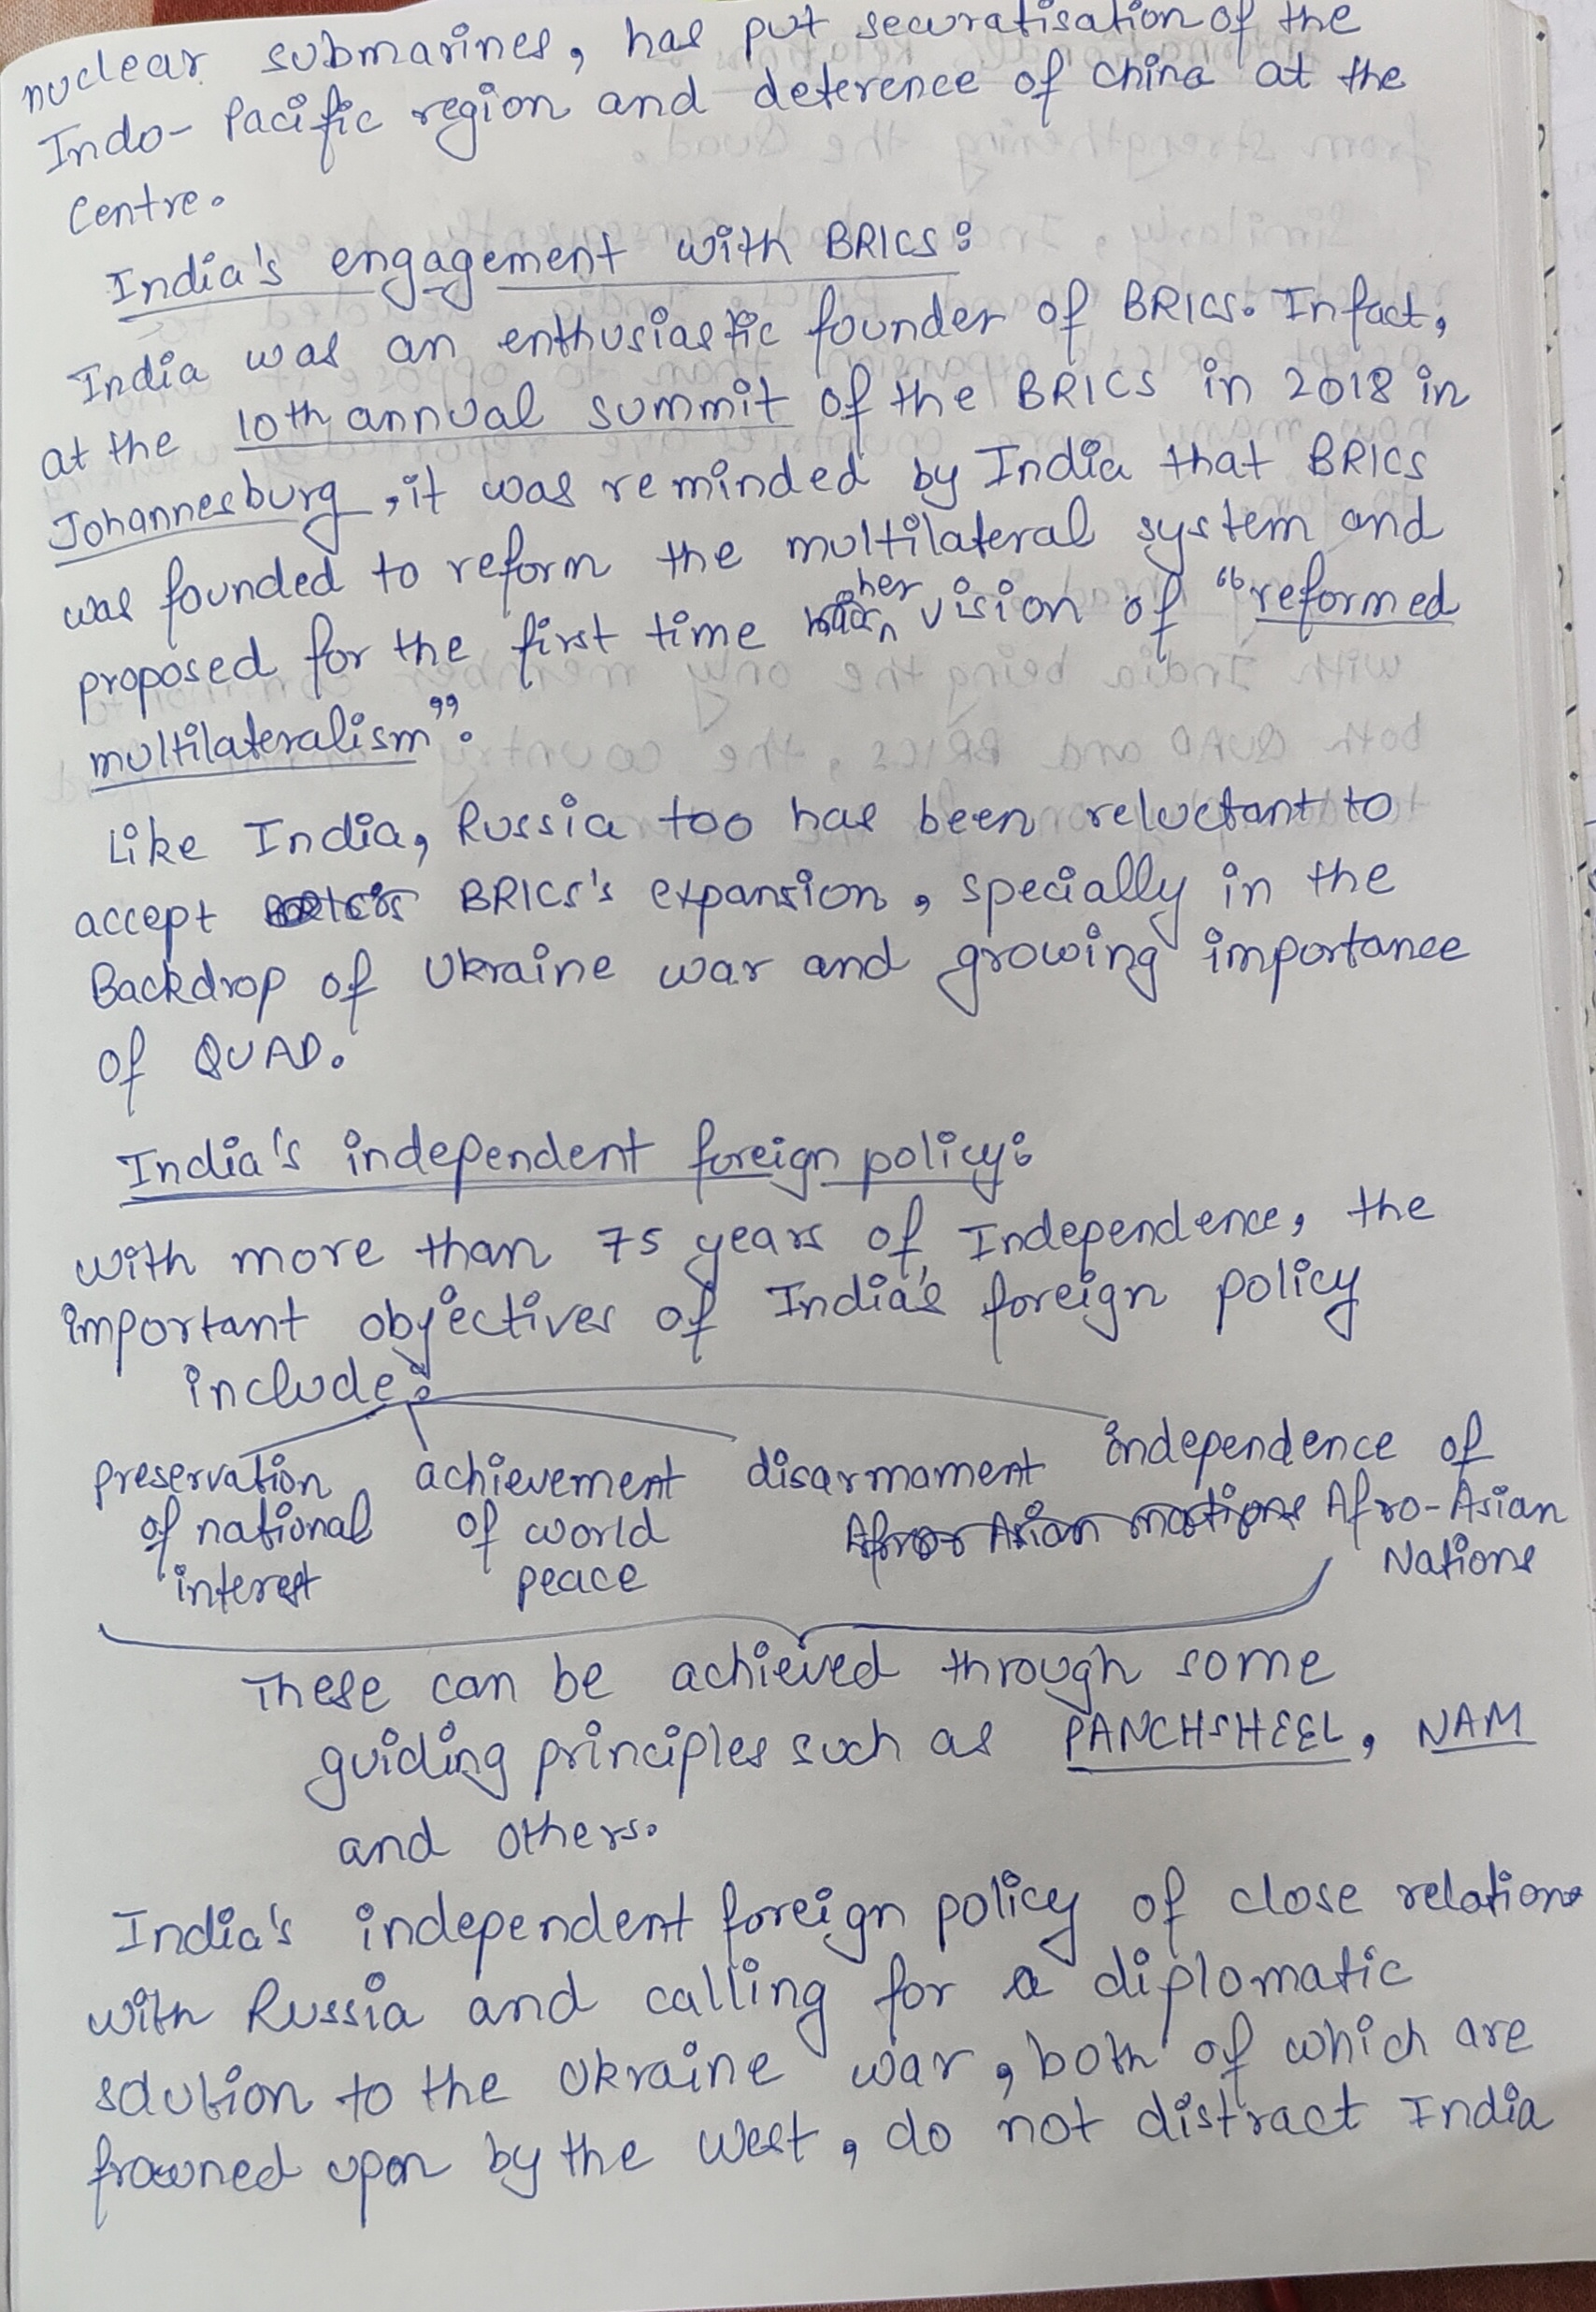 nuclear submarines, has put securatisation of the
Indo-Pacific region and deterence of China at the
Centre.
India's engagement with BRICS:
India was an enthusiastic founder of BRICS. Infact,
at the 10th annual summit of the BRICS in 2018 in
Johannesburg, it was reminded by India that BRICS
was founded to reform the multilateral system and
proposed for the first time her vision of "reformed
multilateralism".
Like India, Russia too has been reluctant to
accept BRICS's expansion, specially in the
Backdrop of Ukraine war and growing importance
of QUAD.
India's independent foreign policy:
with more than 75 years of Independence, the
important objectives of India's foreign policy
include:
preservation of national interest
achievement of world peace
disarmament
independence of Afro-Asian Nations
These can be achieved through some
guiding principles such as PANCHSHEEL, NAM
and others.
India's independent foreign policy of close relations
with Russia and calling for a diplomatic
solution to the Ukraine war, both of which are
frowned upon by the West, do not distract India